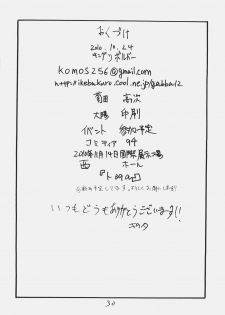 おくづけ
2010.10.24
キングリボルバー
komos256@gmail.com
http://ikebukuro.cool.ne.jp/gabba12
菊田 高次
大陽 印刷
イベント 参加予定
コミティア 94
2010年11月14日国際展示場
西 ホール
いつもどうもありがとうございます!!
30